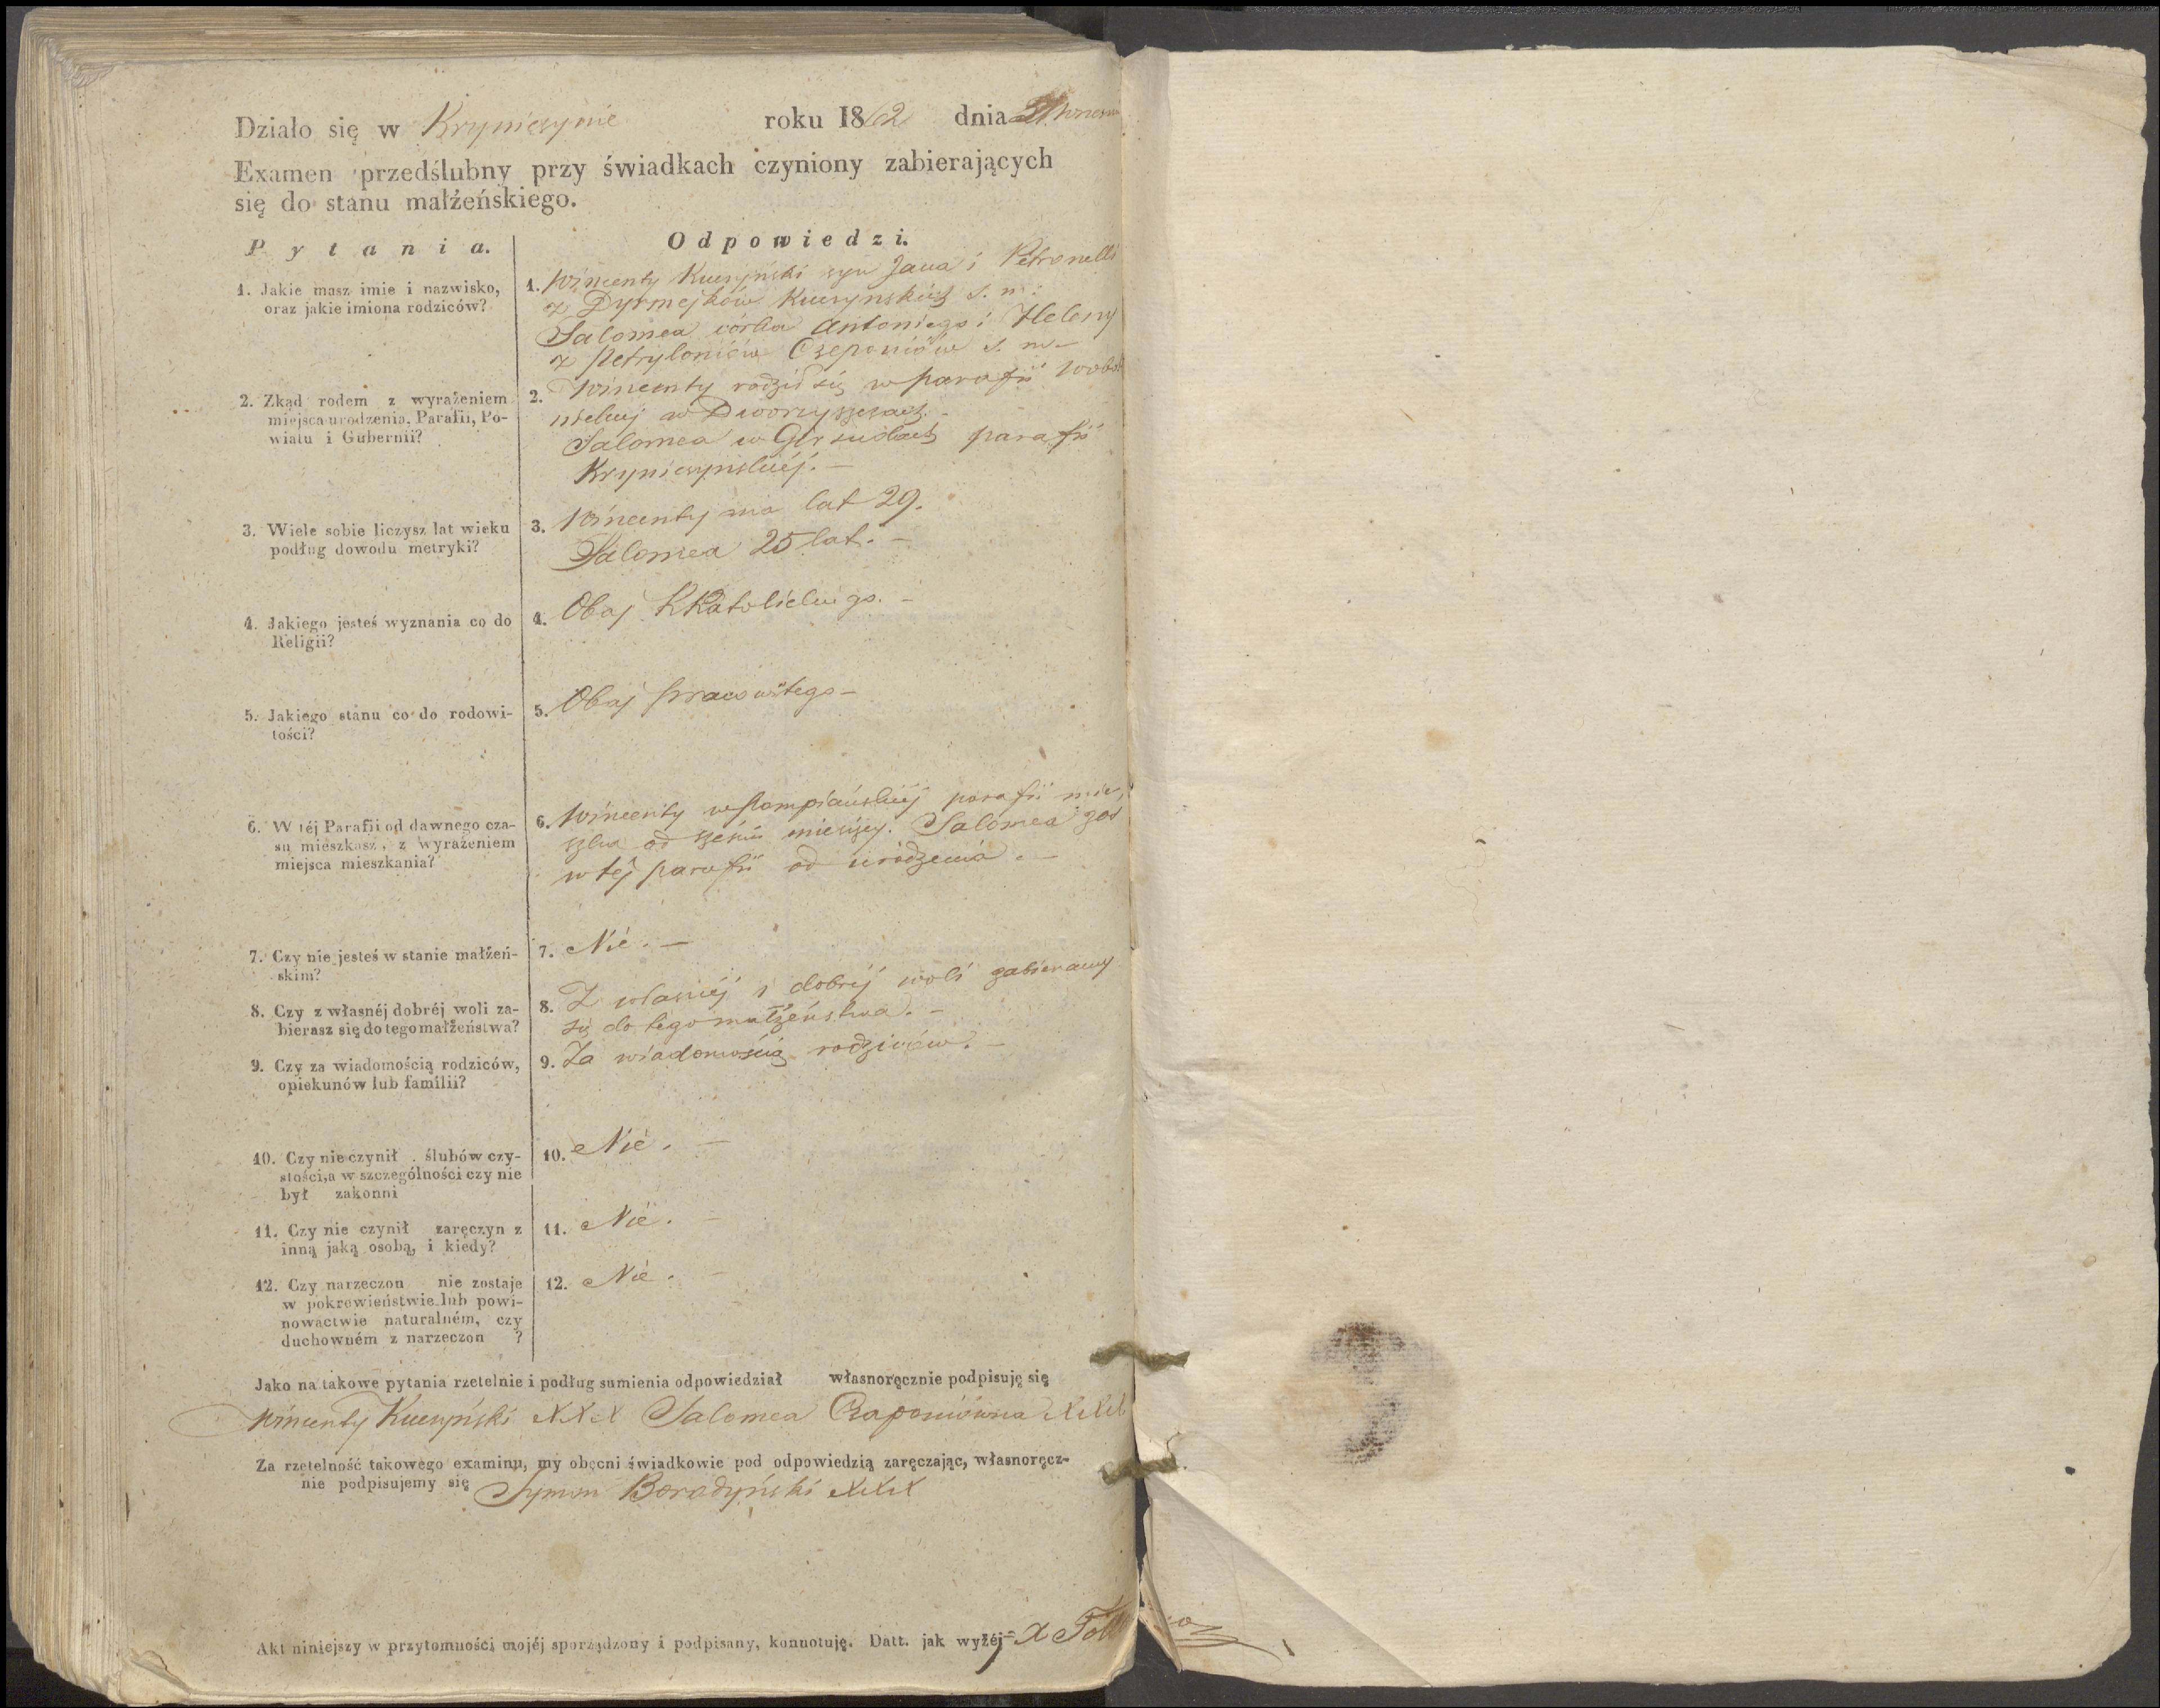 Działo się w Krynicynie roku 1862 dnia 21
Examen przedślubny przy świadkach czyniony zabierających
się do stanu małżeńskiego.
Pytania.
Odpowiedzi.
1. Jakie masz imie i nazwisko,
oraz jakie imiona rodziców?
1. Wincenty Kuczyński syn Jana i Petronelli
z Dyrmejków Kuczynskich s. m:
Salomea córka Antoniego i Heleny
z Petryloniów Czeponiów s. m–
2. Zkąd rodem z wyrażeniem
miejsca urodzenia, Parafii, Po-
wiatu i Gubernii?
2. Wincenty rodził się w parafii
w Dworzyszczach.–
Salomea w parafii
Krynicyńskiéj.–
3. Wiele sobie liczysz lat wieku
podług dowodu metryki?
3. Wincenty ma lat 29.
Salomea 25 lat.–
4. Jakiego jesteś wyznania co do
Religii?
4. Obaj RKatolickiego.–
5. Jakiego stanu co do rodowi-
tości?
5. Obaj pracowitego–
6. W téj Parafii od dawnego cza-
su mieszkasz, z wyrażeniem
miejsca mieszkania?
6. Wincenty w parafii mie-
szka od sześciu miesięcy. Salomea zaś
w téj parafii od urodzenia.–
7. Czy nie jesteś w stanie małżeń-
skim?
7. Nié.–
8. Czy z własnéj dobréj woli za-
bierasz się do tego małżeństwa?
8. Z własnéj i dobréj woli zabieramy
się do tego małżeństwa.–
9. Czy za wiadomością rodziców,
opiekunów lub familii?
9. Za wiadomością rodziców.–
10. Czy nie czynił ślubów czy-
stości, a w szczególności czy nie
był zakonni
10. Nié.–
11. Czy nie czynił zaręczyn z
inną jaką osobą, i kiedy?
11. Nié.–
12. Czy narzeczon nie zostaje
w pokrewieństwie lub powi-
nowactwie naturalném, czy
duchowném z narzeczon ?
12. Nié.–
Jako na takowe pytania rzetelnie i podług sumienia odpowiedział własnoręcznie podpisuję się
Wincenty Kuczyński XXX Salomea Czaponiówna XXX
Za rzetelność takowego examinu, my obecni świadkowie pod odpowiedzią zaręczając, własnoręcz-
nie podpisujemy się Symon Boradyński XXX
Akt niniejszy w przytomności mojéj sporządzony i podpisany, konnotuję. Datt. jak wyżéj– X